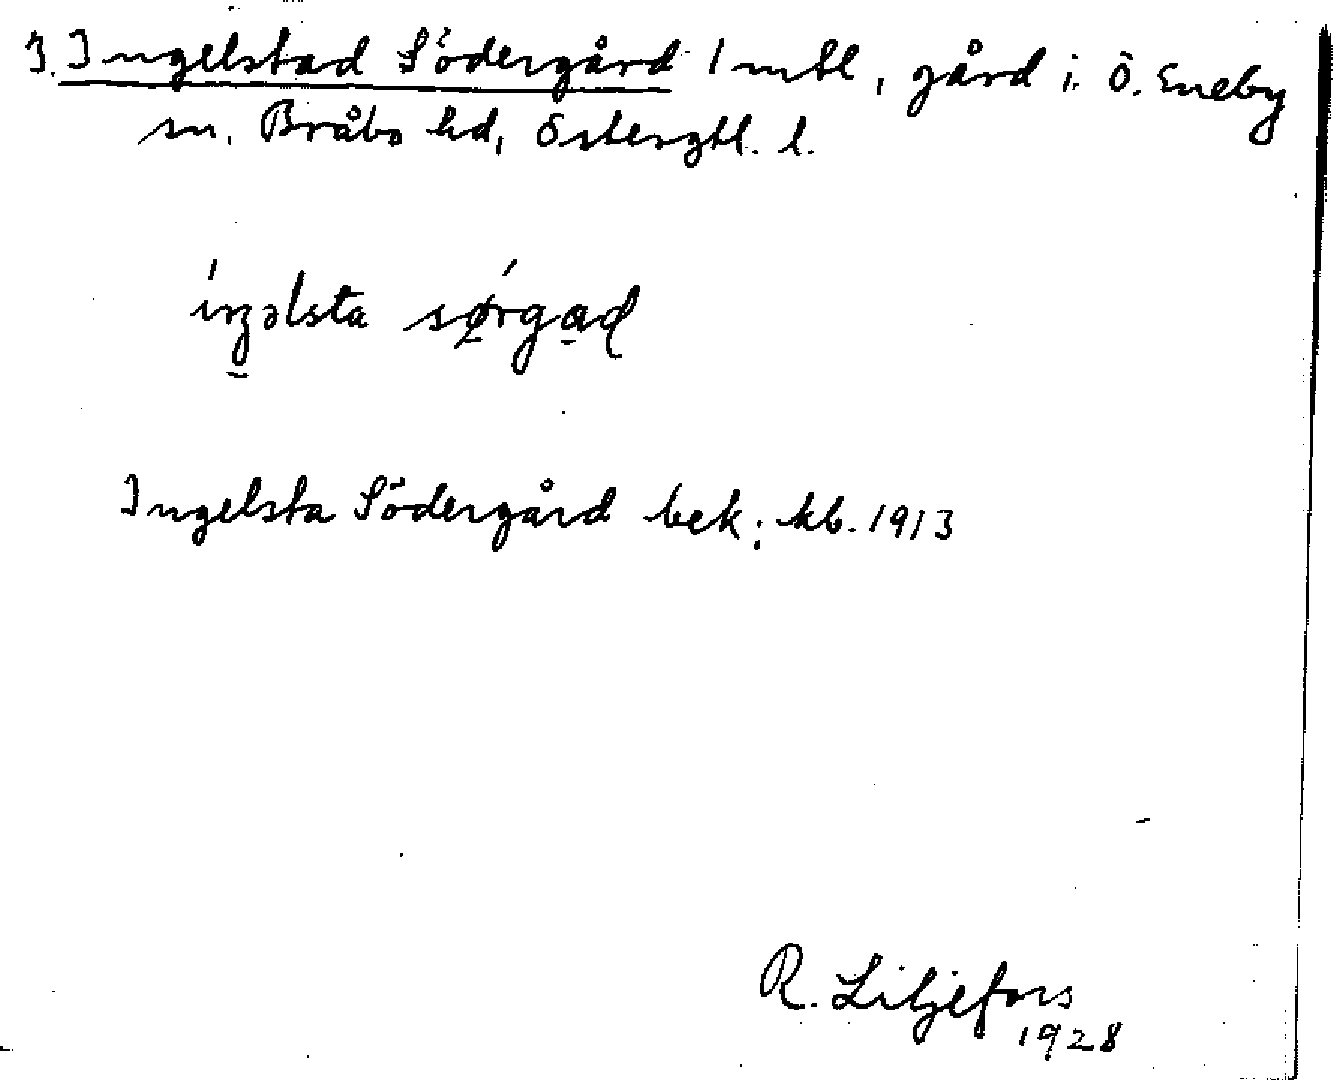 J. Ingelstad Södergård 1 mtl, gård i Ö. Eneby
sn. Bråbo hd, Östergtl. l.
íŋəlsta sǿ̱rga̱ɖ
Ingelsta Södergård bek: kb. 1913
R. Liljefors
1928